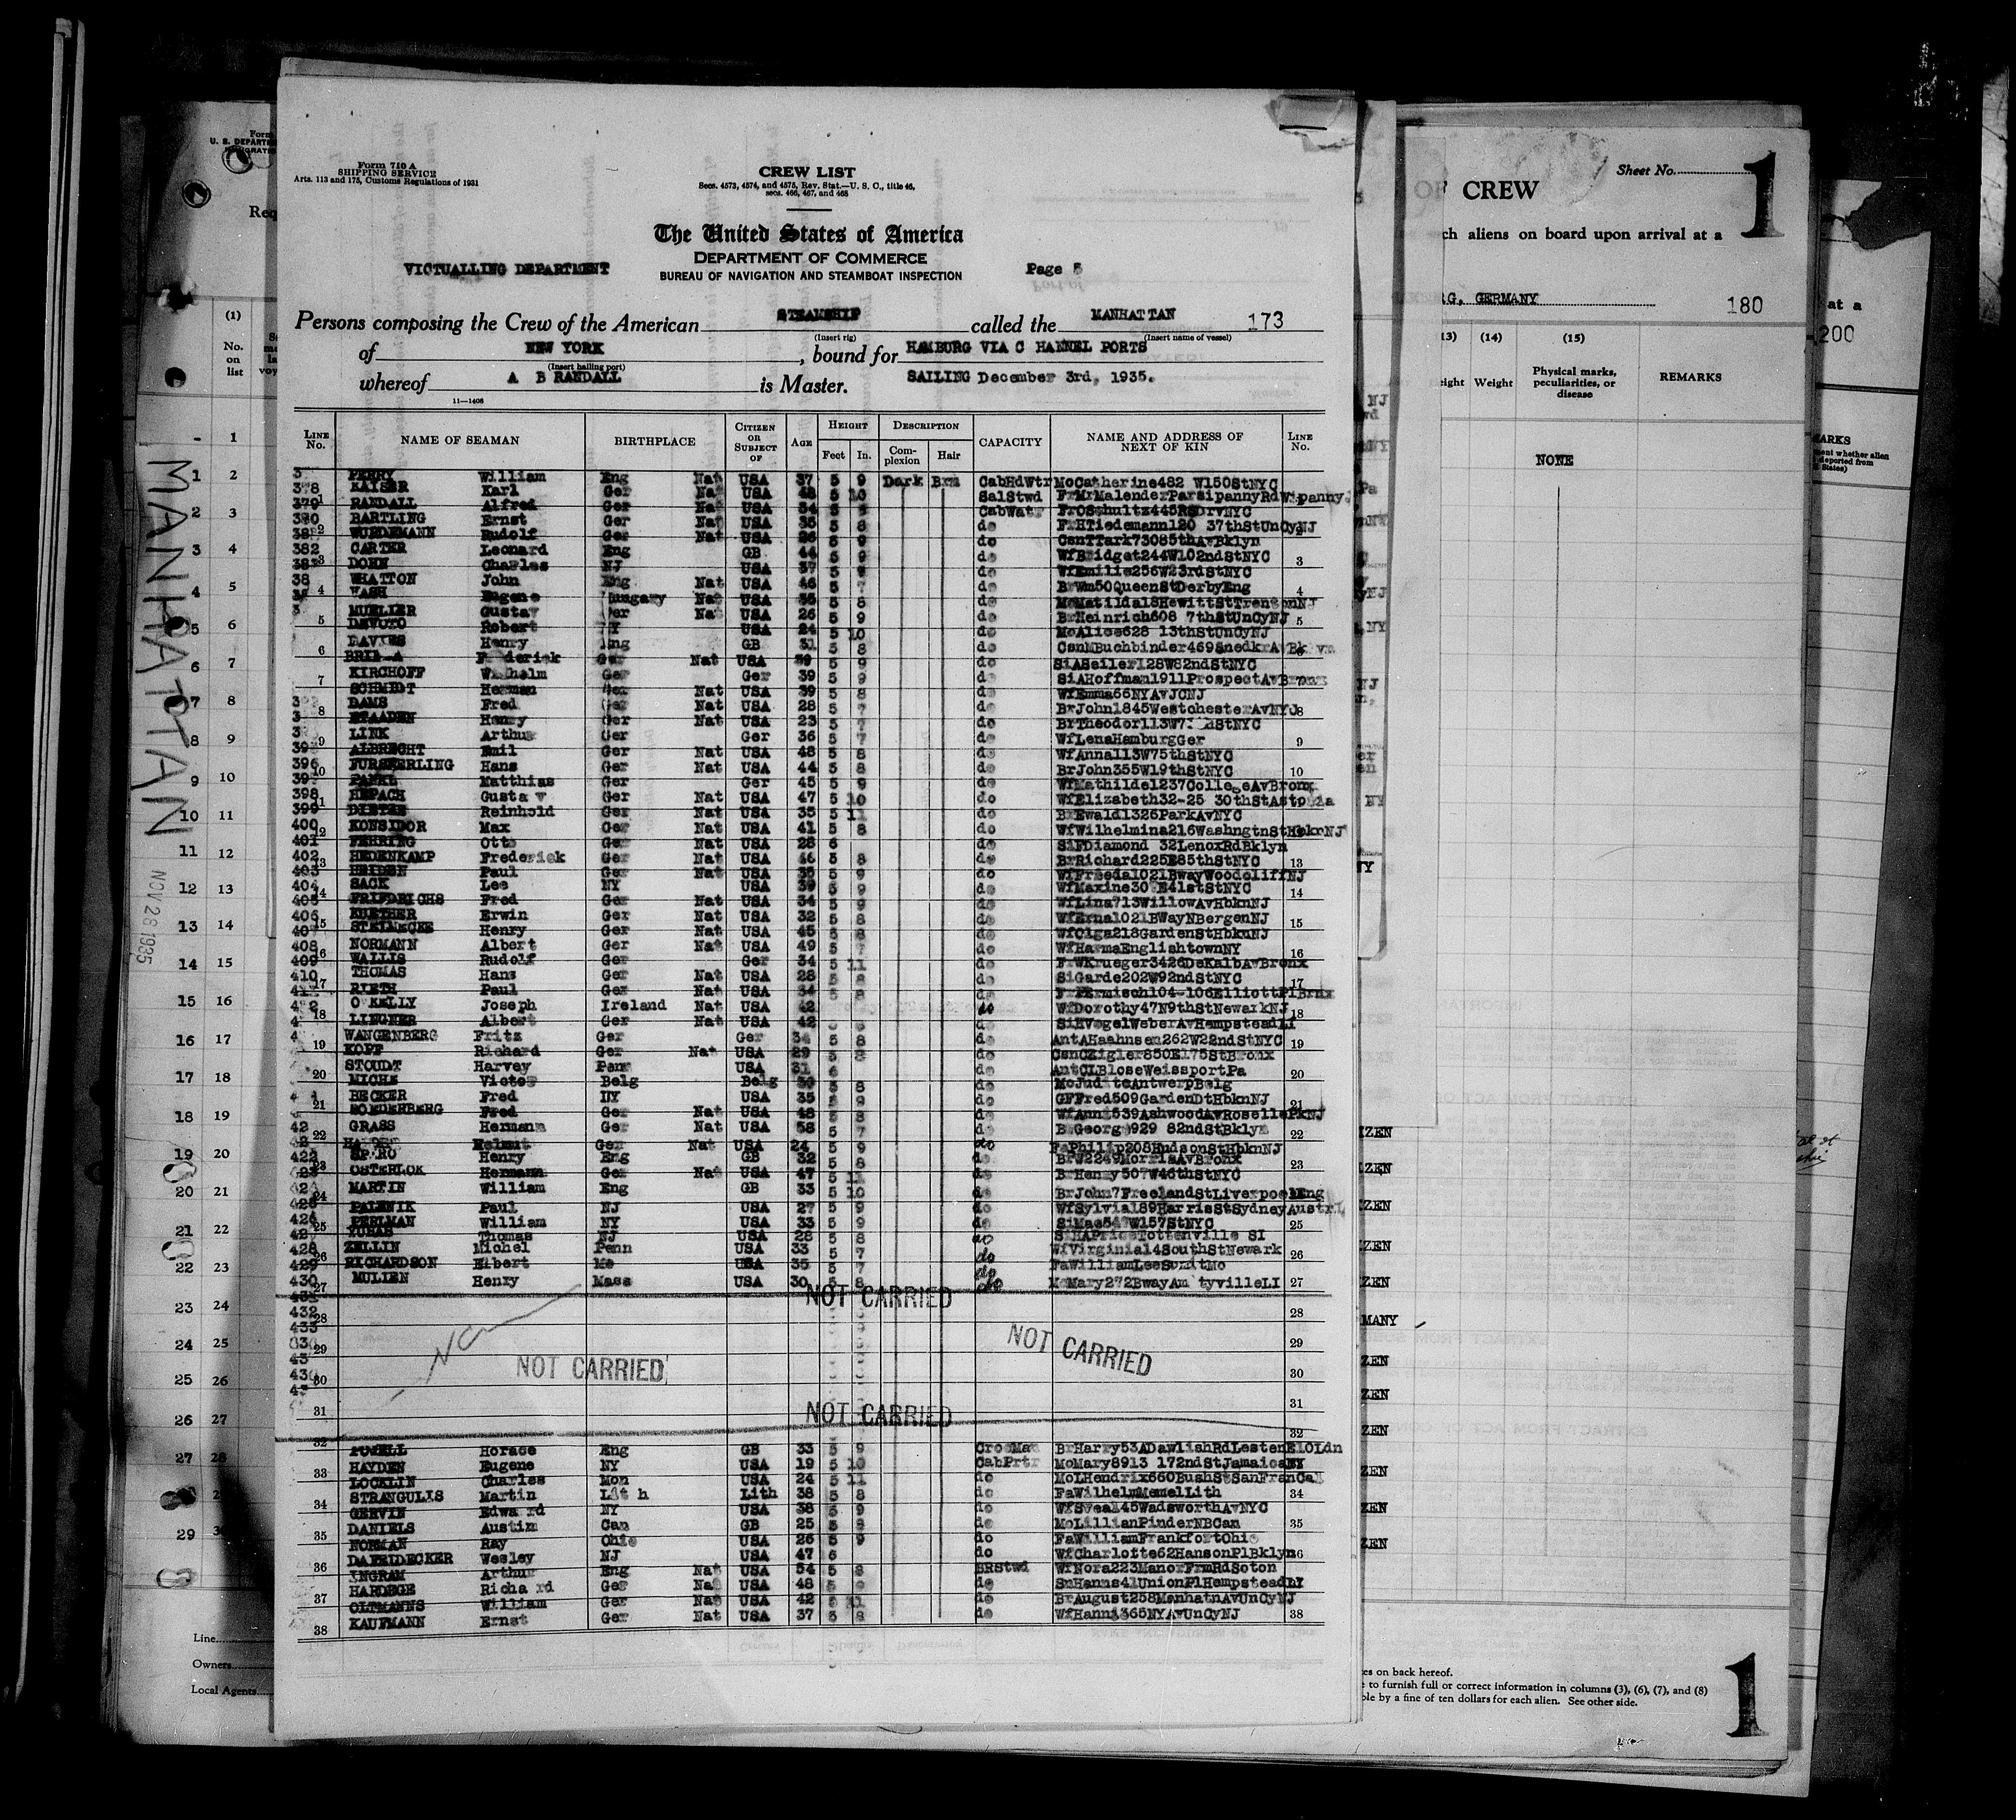 Form 710 A
SHIPPING SERVICE
Arts. 113 and 175, Customs Regulations of 1931
CREW LIST
Secs. 4573, 4574, and 4575, Rev. Stat.—U. S. C., title 46,
secs. 466, 467, and 468
The United States of America
DEPARTMENT OF COMMERCE
BUREAU OF NAVIGATION AND STEAMBOAT INSPECTION
VICTUALLING DEPARTMENT
Page
Persons composing the Crew of the American STEAMSHIP called the MANHATTAN 173
(Insert rig) (Insert name of vessel)
of NEW YORK, bound for HAMBURG VIA C HANNEL PORTS
(Insert hailing port)
whereof A B RANDALL is Master. SAILING December 3rd, 1935.
11—1408
LINE No. NAME OF SEAMAN BIRTHPLACE CITIZEN OR SUBJECT OF AGE HEIGHT Feet In. DESCRIPTION Complexion Hair CAPACITY NAME AND ADDRESS OF NEXT OF KIN LINE No.
PERRY William Eng Nat USA 37 5 9 Dark Brn CabHdWtr MoCatherine482 W150StNYC
378 KAISER Karl Ger Nat USA 48 5 10 SalStwd
379 RANDALL Alfred Ger Nat USA 34 5 CabWatr FrOSchultz445RSDrvNYC
380 BARTLING Ernst Ger Nat USA 35 5 8 do FrHTiedemann120 37thStUnCyNJ
WURDEMANN Rudolf Ger Nat USA 26 5 9 do CsnTTark73085thAvBklyn
382 CARTER Leonard Eng GB 44 5 9 do WfBridget244W102ndStNYC
DOHN Charles NJ USA 37 5 do WfEmilie256W23rdStNYC
WHATTON John Eng Nat USA 46 5 7 do BrWm50QueenStDerbyEng
WASH Eugene Hungary Nat USA 35 5 8 do MoMatilda18HewittStTrentonNJ
MUELLER Gustav Ger Nat USA 26 5 9 do BrHeinrich608 7thStUnCyNJ
DEVOTO Robert NY USA 24 5 10 do MoAlice628 13thStUnCyNJ
DAVIES Henry Eng GB 31 5 8 do
Frederick Ger Nat USA 39 5 9 do SiASeiler128W82ndStNYC
KIRCHOFF Wilhelm Ger Ger 39 5 9 do SiAHoffman1911ProspectAvBronx
SCHMIDT Herman Ger Nat USA 39 5 8 do WfEmma66NYAvJCNJ
DAMS Fred Ger Nat USA 28 5 7 do BrJohn1845WestchesterAvNYC
STAADEN Henry Ger Nat USA 23 5 7 do
LINK Arthur Ger Ger 36 5 7 do WfLenaHamburgGer
ALBRECHT Emil Ger Nat USA 48 5 8 do WfAnna113W75thStNYC
396 FURSTERLING Hans Ger Nat USA 44 5 8 do BrJohn355W19thStNYC
Matthias Ger Ger 45 5 9 do WfMathilde1237CollegeAvBronx
398 HEPACH Gustav Ger Nat USA 47 5 10 do WfElizabeth32-25 30thStAstoria
399 DIETER Reinhold Ger Nat USA 35 5 11 do BrEwald1326ParkAvNYC
400 KONSIDOR Max Ger Nat USA 41 5 8 do WfWilhelmina216WashngtnStHbknNJ
401 FEHRING Otto Ger Nat USA 28 6 do SiFDiamond 32LenoxRdBklyn
402 HEDENKAMP Frederick Ger Nat USA 46 5 8 do BrRichard225E85thStNYC
403 Paul Ger Nat USA 35 5 9 do WfFreeda1021BwayWoodcliffNJ
404 SACK Lee NY USA 39 5 9 do
405 FRIEDRICHS Fred Ger Nat USA 34 5 9 do WfLina713WillowAvHbknNJ
406 KUETHER Erwin Ger Nat USA 32 5 8 do WfErna1021BWayNBergenNJ
407 STEINECKE Henry Ger Nat USA 45 5 8 do WfOlga218GardenStHbknNJ
408 NORMANN Albert Ger Nat USA 49 5 do WfHarmaEnglishtownNY
409 WALLIS Rudolf Ger Ger 34 5 11 do FrWKrueger3426DeKalbAvBronx
410 THOMAS Hans Ger Nat USA 28 5 8 do SiGarde202W92ndStNYC
RIETH Paul Ger Nat USA 34 5 8 do
O'KELLY Joseph Ireland Nat USA 42 do WfDorothy47N9thStNewarkNJ
LINGNER Albert Ger Nat USA 42 do SiHVogelWeberAvHempsteadLI
WANGENBERG Fritz Ger Ger 5 8 do AntAHaahnsen262W22ndStNYC
KOPF Richard Ger Nat USA 29 5 8 do CsnCZigler850E175StBronx
STOUDT Harvey Penn USA 31 6 do AntCLBloseWeissportPa
MICHE Victor Belg Belg 5 8 do MoJuditeAntwerpBelg
BECKER Fred NY USA 35 5 9 do GFFred509GardenDtHbknNJ
SOEDERBERG Fred Ger Nat USA 48 5 8 do WfAnna539AshwoodAvRosellePkNJ
GRASS Hermann Ger Nat USA 58 5 7 do BrGeorge929 82ndStBklyn
Helmut Ger Nat USA 24 5 9 do FaPhilip208HudsonStHbknNJ
422 SPIRO Henry Eng GB 32 5 8 do BrW2249MorrisAvBronx
OSTERLOK Hermann Ger Nat USA 47 5 11 do BrHenry507W46thStNYC
MARTIN William Eng GB 33 5 10 do BrJohn7FreelandStLiverpoolEng
PALENIK Paul NJ USA 27 5 9 do WfSylvia189HarrisStSydneyAustrl
PERLMAN William NY USA 33 5 9 do SiMae547W157StNYC
Thomas NJ USA 28 5 8 do SiHAPriceTottenville SI
428 ZELLIN Michel Penn USA 33 5 7 do WfVirginia14SouthStNewark
429 RICHARDSON Elbert Me USA 35 5 7 do
430 MULLEN Henry Mass USA 30 5 8 do MoMary272BwayAm tyvilleLI
NOT CARRIED
NOT CARRIED
NC
NOT CARRIED
NOT CARRIED
POWELL Horace Eng GB 33 5 9 BrHarry53ADawlishRdLestenE10Ldn
HAYDEN Eugene NY USA 19 5 10 CabPrtr MoMary8913 172ndStJamaicaNY
LOCKLIN Charles Mon USA 24 5 11 do MoLHendrix660BushStSanFranCal
STRANGULIS Martin Lith Lith 38 5 8 do FaWilhelmMemelLith
GERVIN Edward NY USA 38 5 9 do WfSveal45WadsworthAvNYC
DANIELS Austin Can GB 25 5 8 do MoLillianPinderNBCan
NORMAN Ray Ohio USA 26 5 9 do FaWilliamFrankfortOhio
DAFRIDECKER Wesley NJ USA 47 6 do WfCharlotte62HansonPlBklyn
INGRAM Arthur Eng Nat USA 54 5 8 SRStwd WfNora223ManorFrmRdSoton
HARDEGE Richard Ger Nat USA 48 5 do SnHanns41UnionPlHempsteadLI
OLTMANNS William Ger Nat USA 42 5 11 do BrAugust258ManhatnAvUnCyNJ
KAUFMANN Ernst Ger Nat USA 37 5 8 do WfHanni365NYAvUnCyNJ
MANHATTAN
NOV 28 1935
Line
Owners
Local Agents
Sheet No. 1
CREW
ch aliens on board upon arrival at a
RG, GERMANY 180
(14) (15)
Weight Physical marks, peculiarities, or disease REMARKS
NONE
at a
200
es on back hereof.
e to furnish full or correct information in columns (3), (6), (7), and (8)
ble by a fine of ten dollars for each alien. See other side.
1